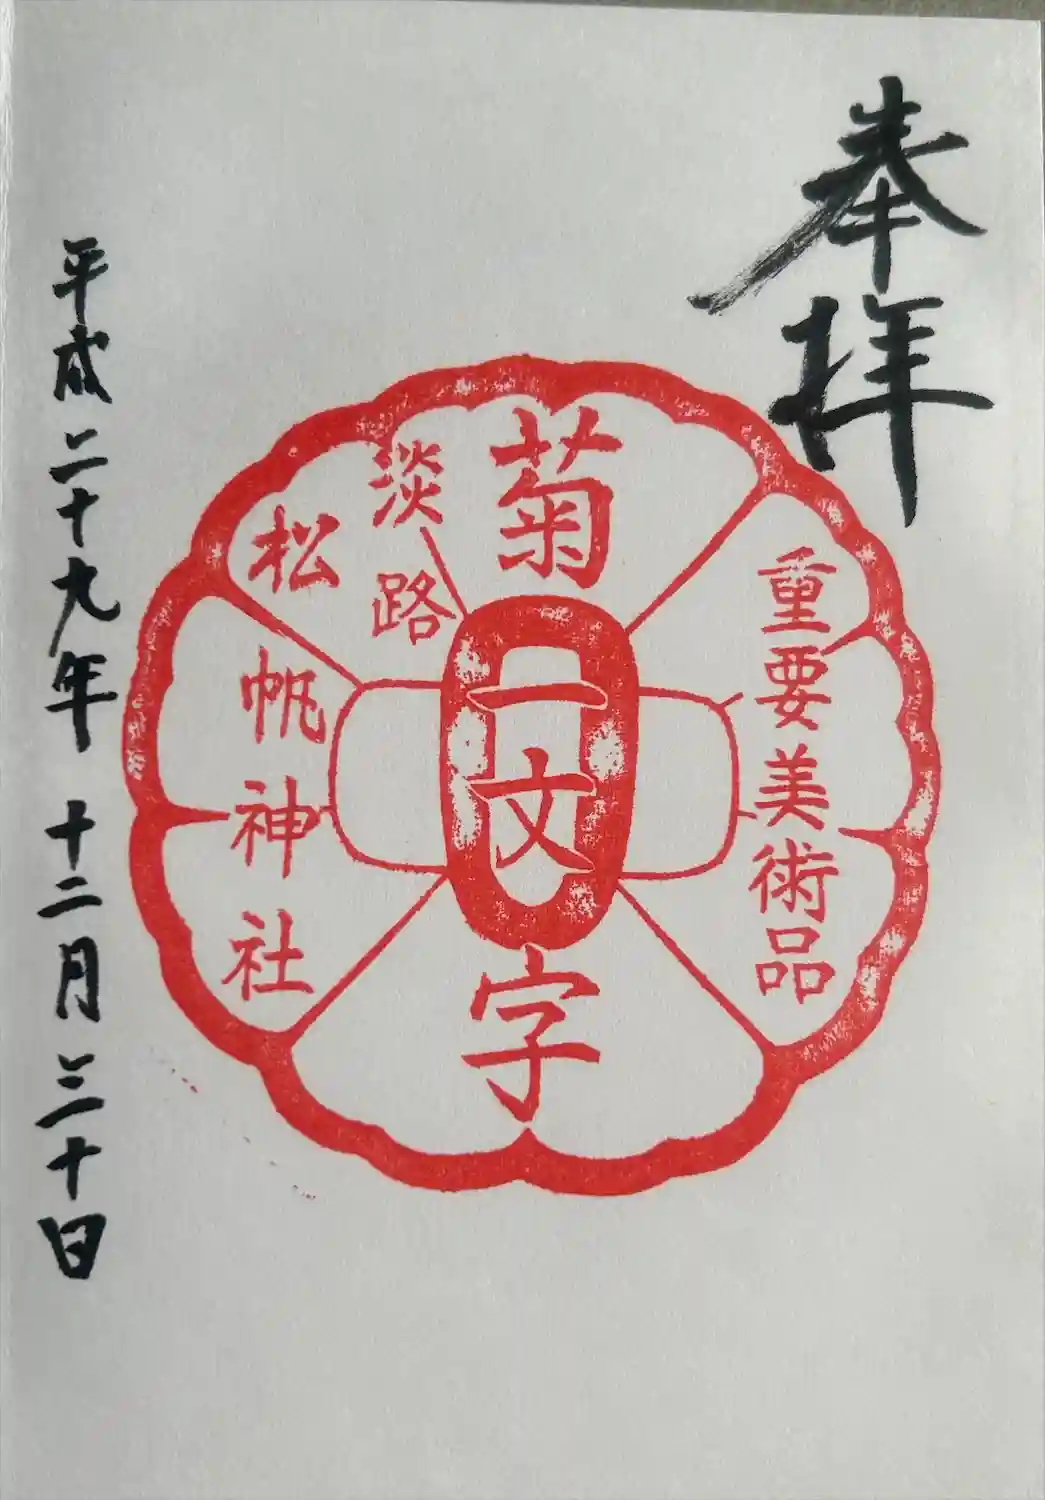 奉拝
重要美術品
菊一文字
淡路
松帆神社
平成二十九年十二月三十日